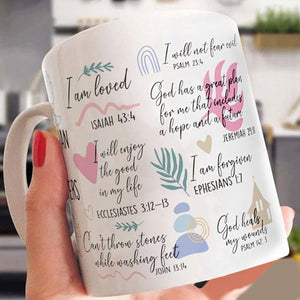 I am loved
ISAIAH 43:4
I will not fear evil
PSALM 23:4
God has a great plan
for me that includes
a hope and a future
JEREMIAH 29:11
I will enjoy
the good
in my life
ECCLESIASTES 3:12-13
I am forgiven
EPHESIANS 1:7
Can't throw stones
while washing feet
JOHN 13:14
God heals
my wounds
PSALM 147:3